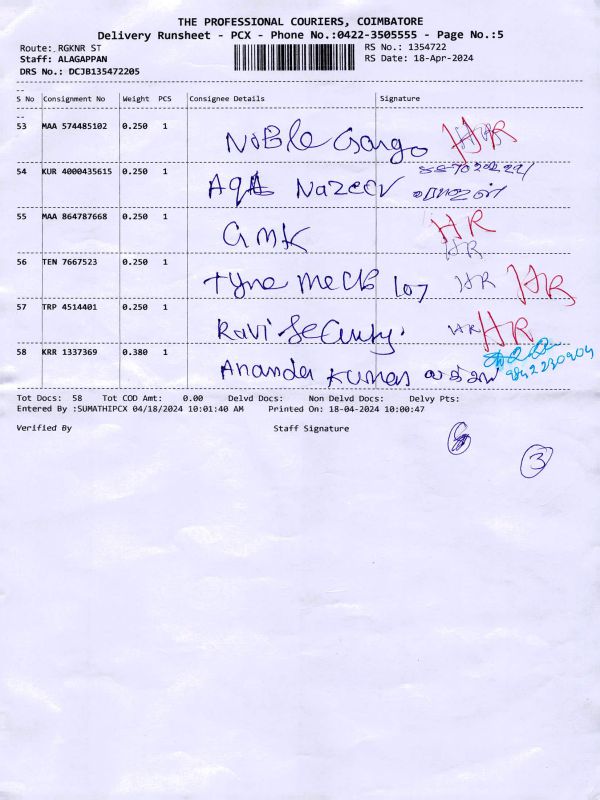 THE PROFESSIONAL COURIERS, COIMBATORE
Delivery Runsheet - PCX - Phone No.:0422-3505555 - Page No.:5
Route: RGKNR ST RS No.: 1354722
Staff: ALAGAPPAN RS Date: 18-Apr-2024
DRS No.: DCJB135472205
S No Consignment No Weight PCS Consignee Details Signature
53 MAA 574485102 0.250 1 Noble Cargo HR HR
54 KUR 4000435615 0.250 1 Nazeer
55 MAA 864787668 0.250 1 GMK HR
HR
56 TEN 7667523 0.250 1 Tyne Mech Log HR HR
57 TRP 4514401 0.250 1 Ravi Security. HR HR
58 KRR 1337369 0.380 1 Ananda Kumar
Tot Docs: 58 Tot COD Amt: 0.00 Delvd Docs: Non Delvd Docs: Delvy Pts:
Entered By :SUMATHIPCX 04/18/2024 10:01:40 AM Printed On: 18-04-2024 10:00:47
Verified By Staff Signature
3